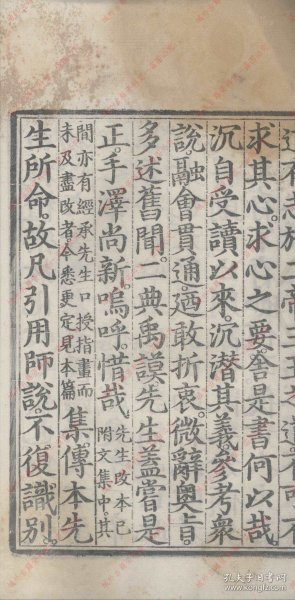 求其心。求心之要。舍是書何以哉
沉自受讀以來。沉潛其義。參考衆
說。融會貫通。迺敢折衷。微辭奥旨。
多述舊聞。二典禹謨。先生蓋嘗是
正。手澤尚新。嗚呼。惜哉。先生改本已附文集中。其
間亦有經承先生口授指畫而未及盡改者。今悉更定見本篇集傳本先
生所命。故凡引用師說。不復識別。
孔夫子旧书网